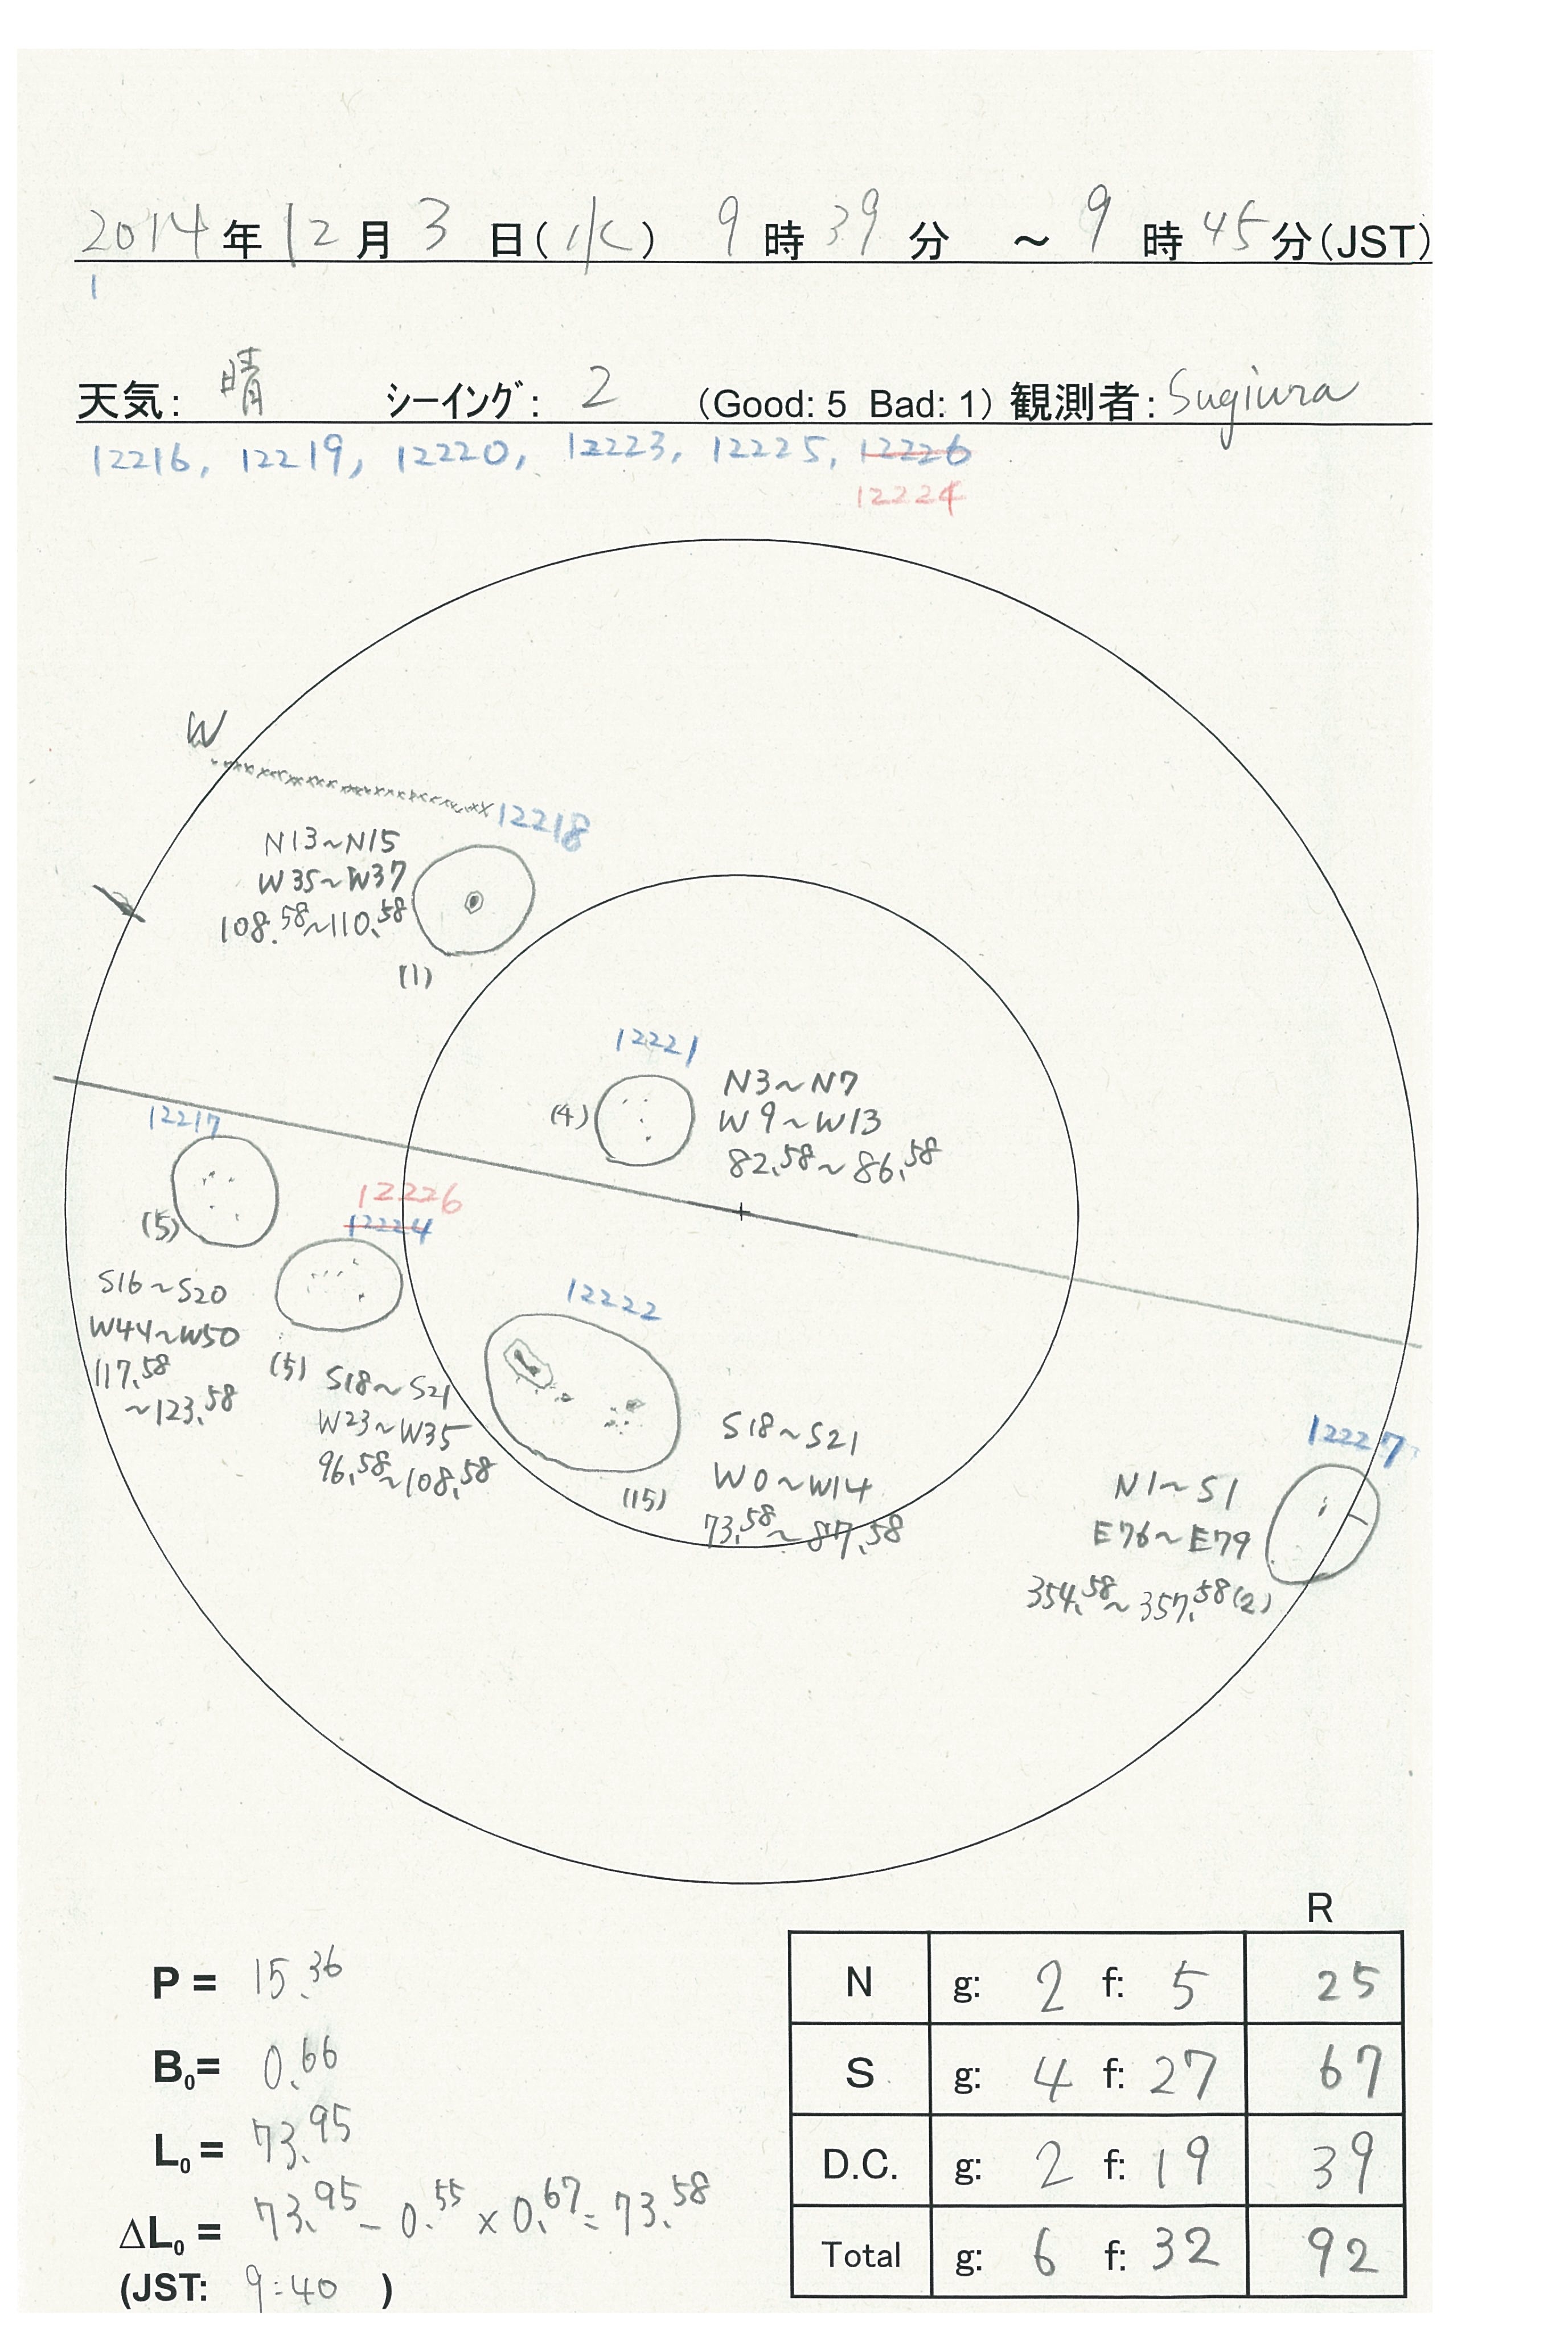 2014年12月3日(水) 9時39分 ～ 9時45分(JST)
1
天気: 晴 シーイング: 2 (Good: 5 Bad: 1) 観測者: Sugiura
12216, 12219, 12220, 12223, 12225, 12226
12224
W
12218
N13～N15
W35～W37
108.58～110.58
(1)
12221
(4)
N3～N7
W9～W13
82.58～86.58
12217
(5)
S16～S20
W44～W50
117.58
～123.58
12226
12224
(5)
S18～S21
W23～W35
96.58～108.58
12222
(15)
S18～S21
W0～W14
73.58～87.58
12227
N1～S1
E76～E79
354.58～357.58(2)
P = 15.36
B0= 0.66
L0 = 73.95
ΔL0 = 73.95 - 0.55 × 0.67 = 73.58
(JST: 9:40 )
R
N g: 2 f: 5 25
S g: 4 f: 27 67
D.C. g: 2 f: 19 39
Total g: 6 f: 32 92